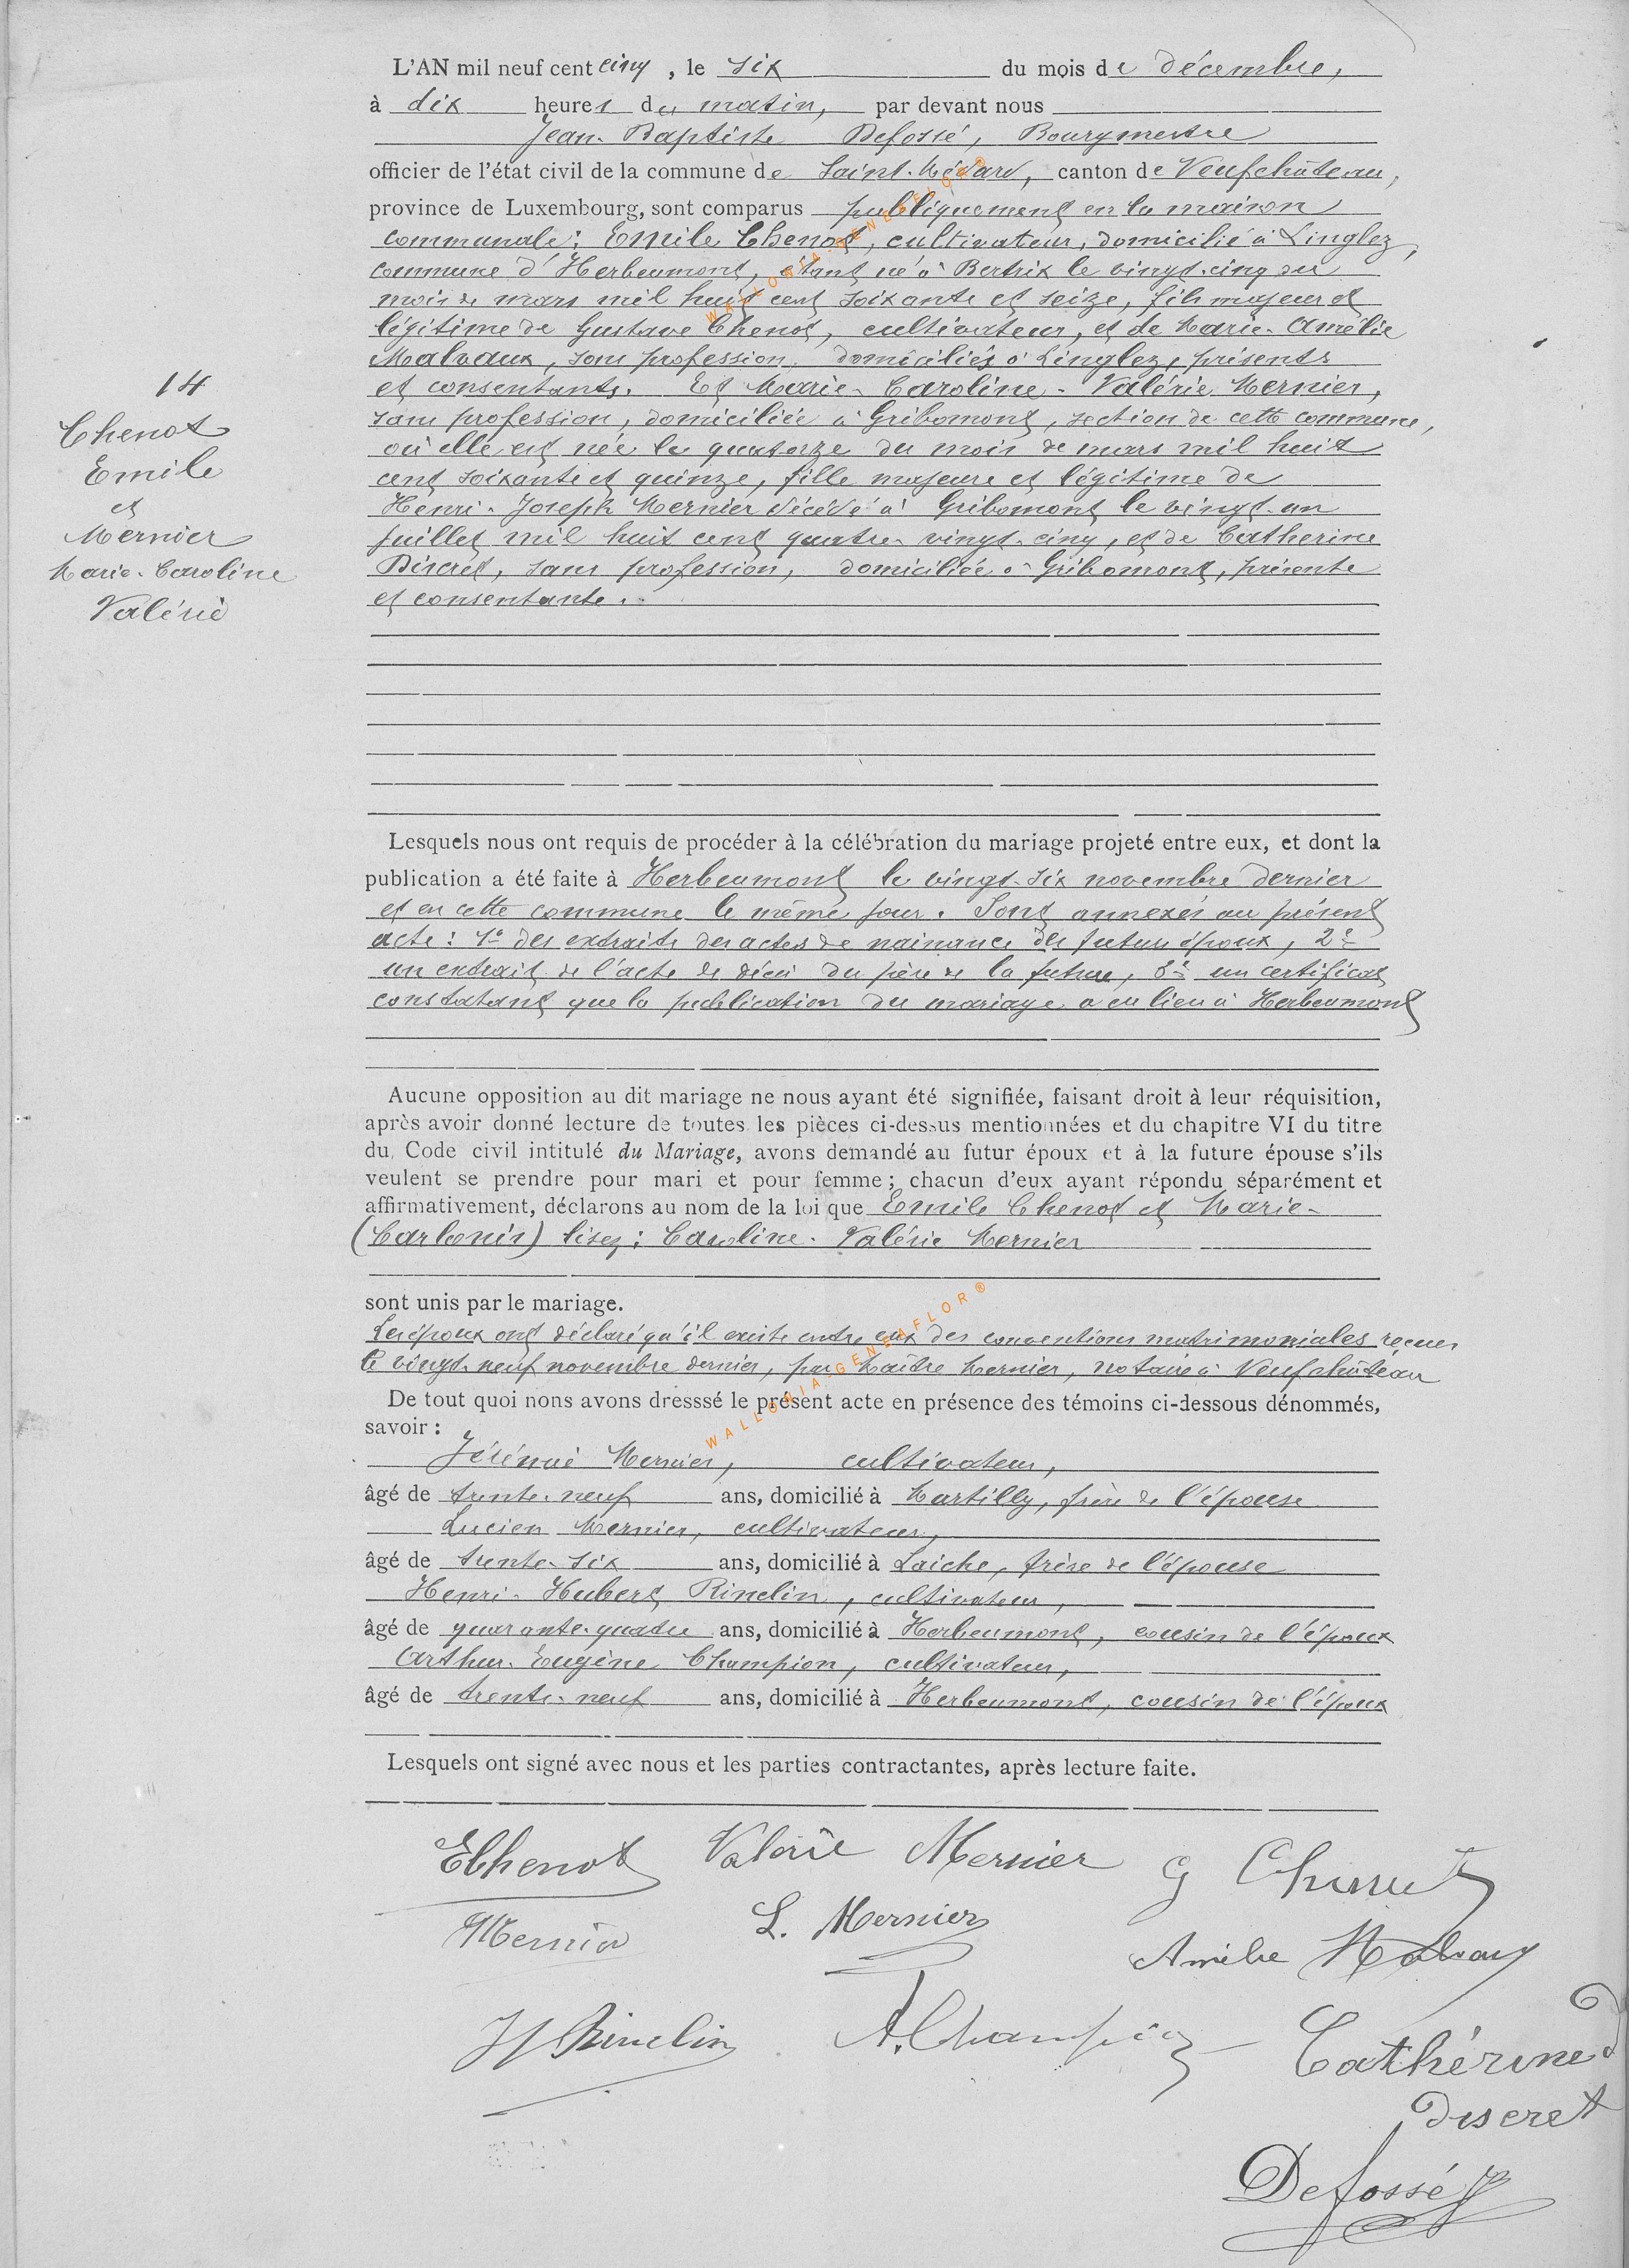 L'AN mil neuf cent cinq, le six du mois de décembre,
à dix heures du matin, par devant nous
Jean-Baptiste Defossé, Bourgmestre
officier de l'état civil de la commune de Saint-Médard, canton de Neufchâteau,
province de Luxembourg, sont comparus publiquement en la maison
communale: Emile Chenot, cultivateur, domicilié à Linglez,
commune d'Herbeumont, étant né à Bertrix le vingt-cinq du
mois de mars mil huit cent soixante et seize, fils majeur et
légitime de Gustave Chenot, cultivateur, et de Marie-Amélie
Malvaux, sans profession, domiciliés à Linglez, présents
et consentants. Et Marie-Caroline-Valérie Mernier,
sans profession, domiciliée à Gribomont, section de cette commune,
où elle est née le quatorze du mois de mars mil huit
cent soixante et quinze, fille majeure et légitime de
Henri-Joseph Mernier décédé à Gribomont le vingt-un
juillet mil huit cent quatre-vingt-cinq, et de Catherine
Discret, sans profession, domiciliée à Gribomont, présente
et consentante.
14
Chenot
Emile
et
Mernier
Marie-Caroline
Valérie
Lesquels nous ont requis de procéder à la célébration du mariage projeté entre eux, et dont la
publication a été faite à Herbeumont le vingt-six novembre dernier
et en cette commune le même jour. Sont annexés au présent
acte: 1° des extraits des actes de naissance des futurs époux, 2°
un extrait de l'acte de décès du père de la future, 3° un certificat
constatant que la publication du mariage a eu lieu à Herbeumont
Aucune opposition au dit mariage ne nous ayant été signifiée, faisant droit à leur réquisition,
après avoir donné lecture de toutes les pièces ci-dessus mentionnées et du chapitre VI du titre
du Code civil intitulé du Mariage, avons demandé au futur époux et à la future épouse s'ils
veulent se prendre pour mari et pour femme; chacun d'eux ayant répondu séparément et
affirmativement, déclarons au nom de la loi que Emile Chenot et Marie-
lisez: Caroline-Valérie Mernier
sont unis par le mariage.
Les époux ont déclaré qu'il existe entre eux des conventions matrimoniales reçues
le vingt-neuf novembre dernier, par Maître Mernier, notaire à Neufchâteau
De tout quoi nons avons dresssé le présent acte en présence des témoins ci-dessous dénommés,
savoir:
Jérémie Mernier, cultivateur,
âgé de trente-neuf ans, domicilié à Martilly, frère de l'épouse
Lucien Mernier, cultivateur,
âgé de trente-six ans, domicilié à Laiche, frère de l'épouse
Henri-Hubert Rinclin, cultivateur,
âgé de quarante-quatre ans, domicilié à Herbeumont, cousin de l'époux
Arthur-Eugène Champion, cultivateur,
âgé de trente-neuf ans, domicilié à Herbeumont, cousin de l'époux
Lesquels ont signé avec nous et les parties contractantes, après lecture faite.
EChenot Valérie Mernier G Chenot
Mernier L. Mernier
Amélie Malvaux
H Rinclin A. Champion Cathérine
discret
Defossé
WALLONIA-GENEAFLOR®
WALLONIA-GENEAFLOR®